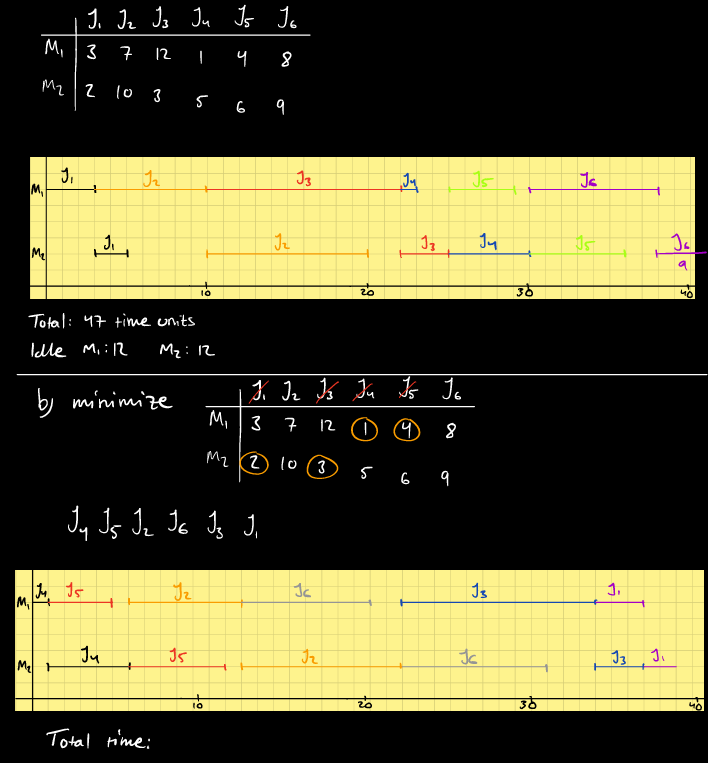 J₁ J₂ J₃ J₄ J₅ J₆
M₁ 3 7 12 1 4 8
M₂ 2 10 3 5 6 9
M₁ J₁ J₂ J₃ J₄ J₅ J₆
M₂ J₁ J₂ J₃ J₄ J₅ J₆
9
10 20 30 40
Total: 47 time units
Idle M₁: 12 M₂: 12
b) minimize
J₁ J₂ J₃ J₄ J₅ J₆
M₁ 3 7 12 1 4 8
M₂ 2 10 3 5 6 9
J₄ J₅ J₂ J₆ J₃ J₁
M₁ J₄ J₅ J₂ J₆ J₃ J₁
M₂ J₄ J₅ J₂ J₆ J₃ J₁
10 20 30 40
Total time: